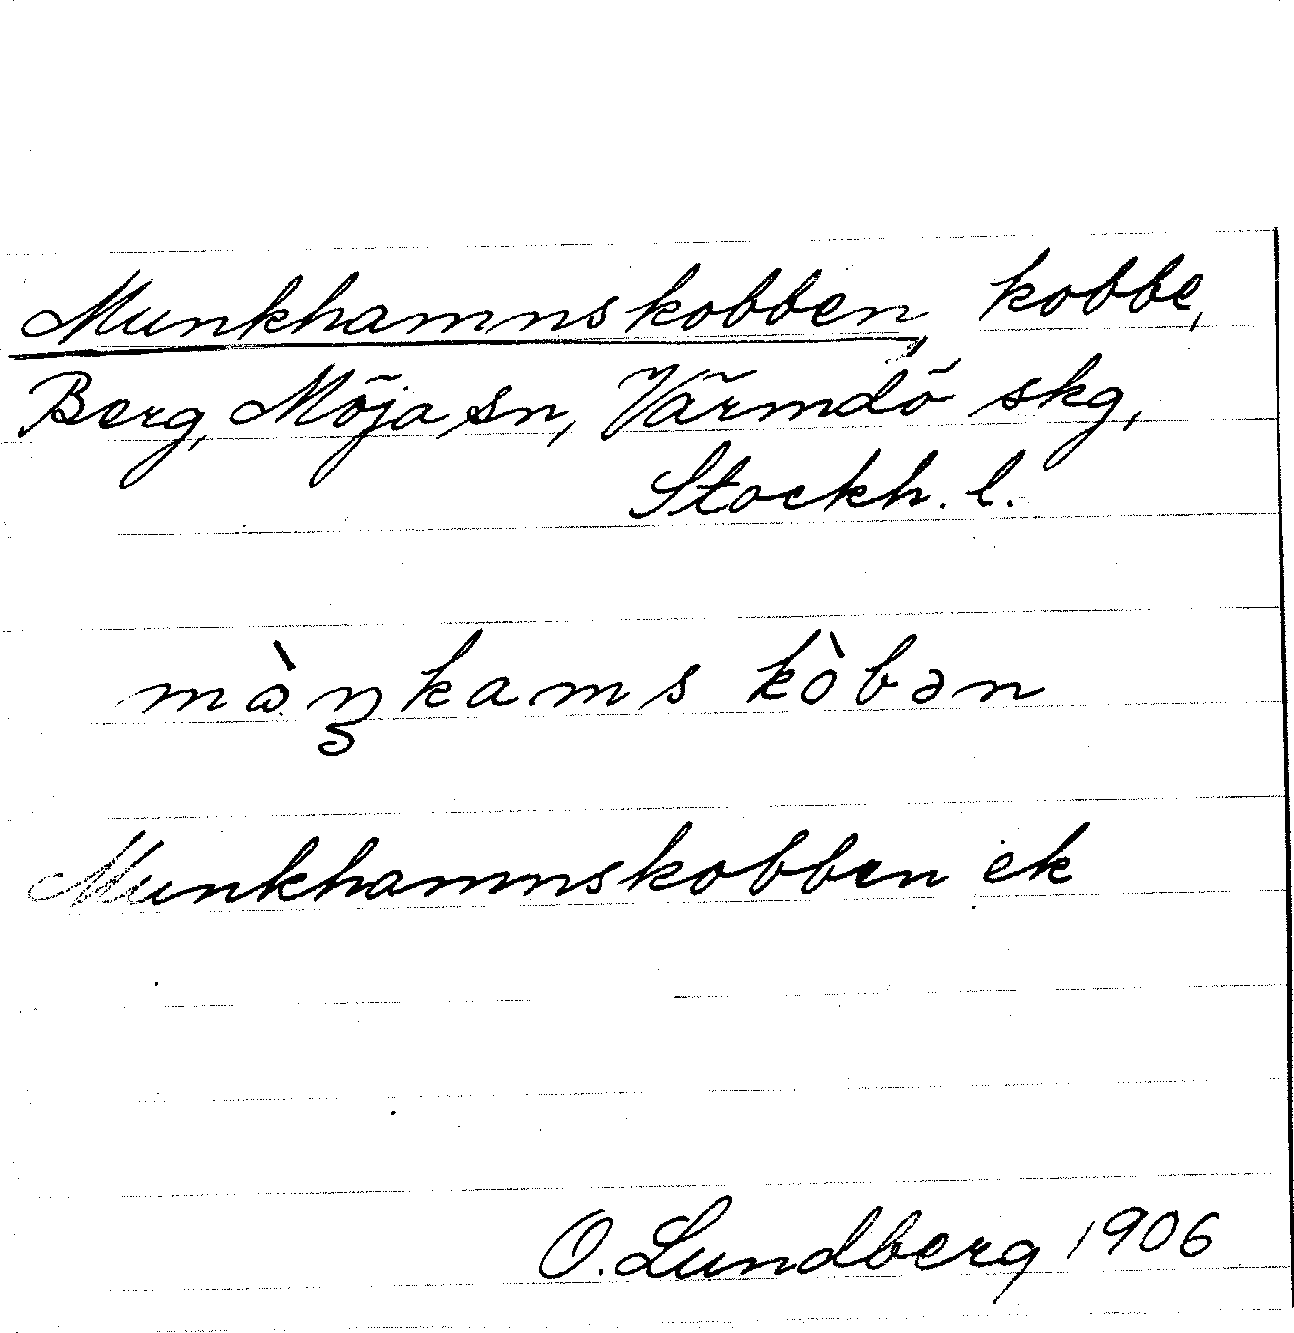 Munkhamnskobben, kobbe,
Berg, Möja sn, Värmdö skg,
Stockh. l.
mὼŋkams kòbən
Munkhamnskobben ek
O. Lundberg 1906